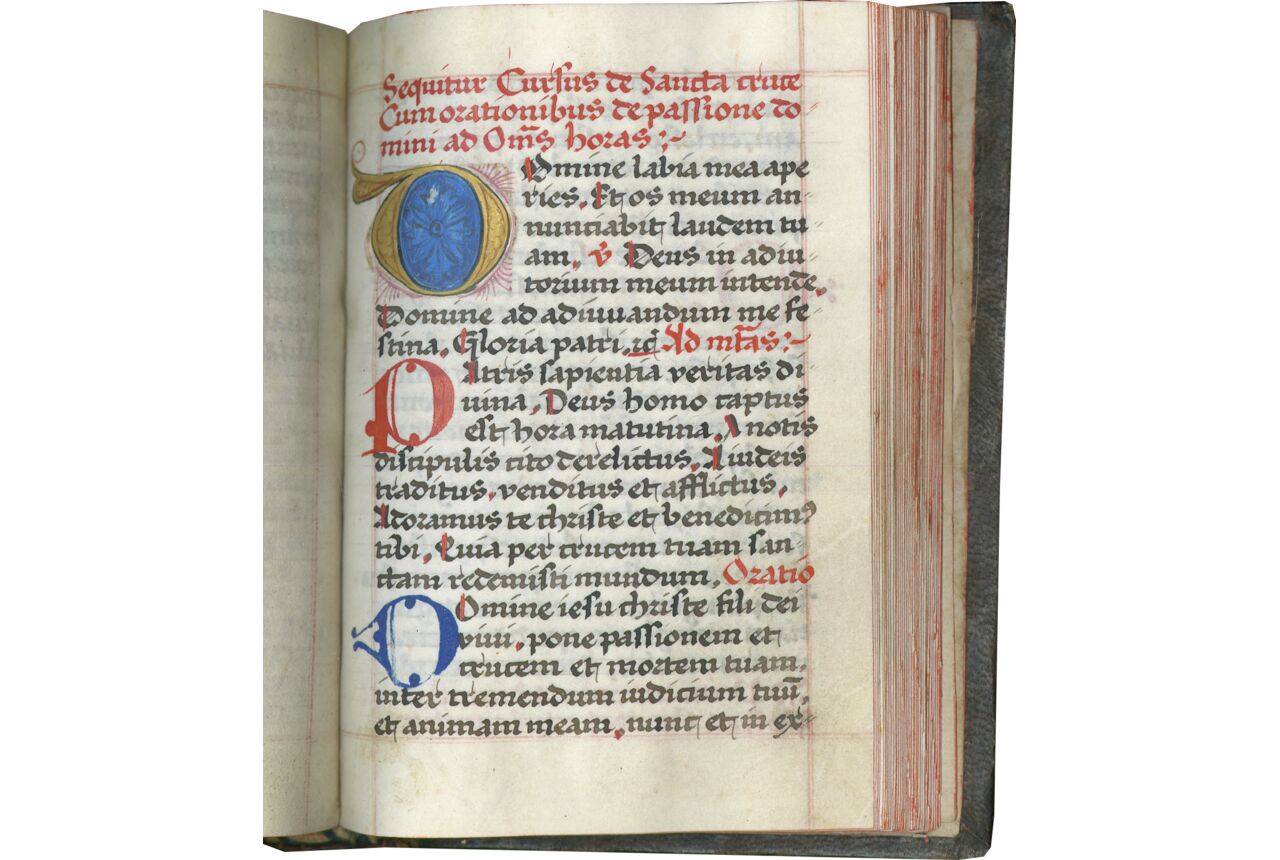 Sequitur Cursus de Sancta cruce
Cum orationibus de passione do
mini ad Om̄s horas :~
DOmine labia mea ape
ries. Et os meum an
nunciabit laudem tu
am. v̄ Deus in adiu
torium meum intende.
Domine ad adiuuandum me fe
stina. Gloria patri. ꝛc̄ Ad mr̄as :~
PAtris sapientia veritas di
uina. Deus homo captus
est hora matutina. A notis
discipulis cito derelictus. A iudeis
traditus. venditus et afflictus.
Adoramus te christe et benedicimꝰ
tibi. Quia per crucem tuam san
ctam redemisti mundum. Oratio
DOmine iesu christe fili dei
viui. pone passionem et
crucem et mortem tuam.
inter tremendum iudicium tuū.
et animam meam. nunc et in ex